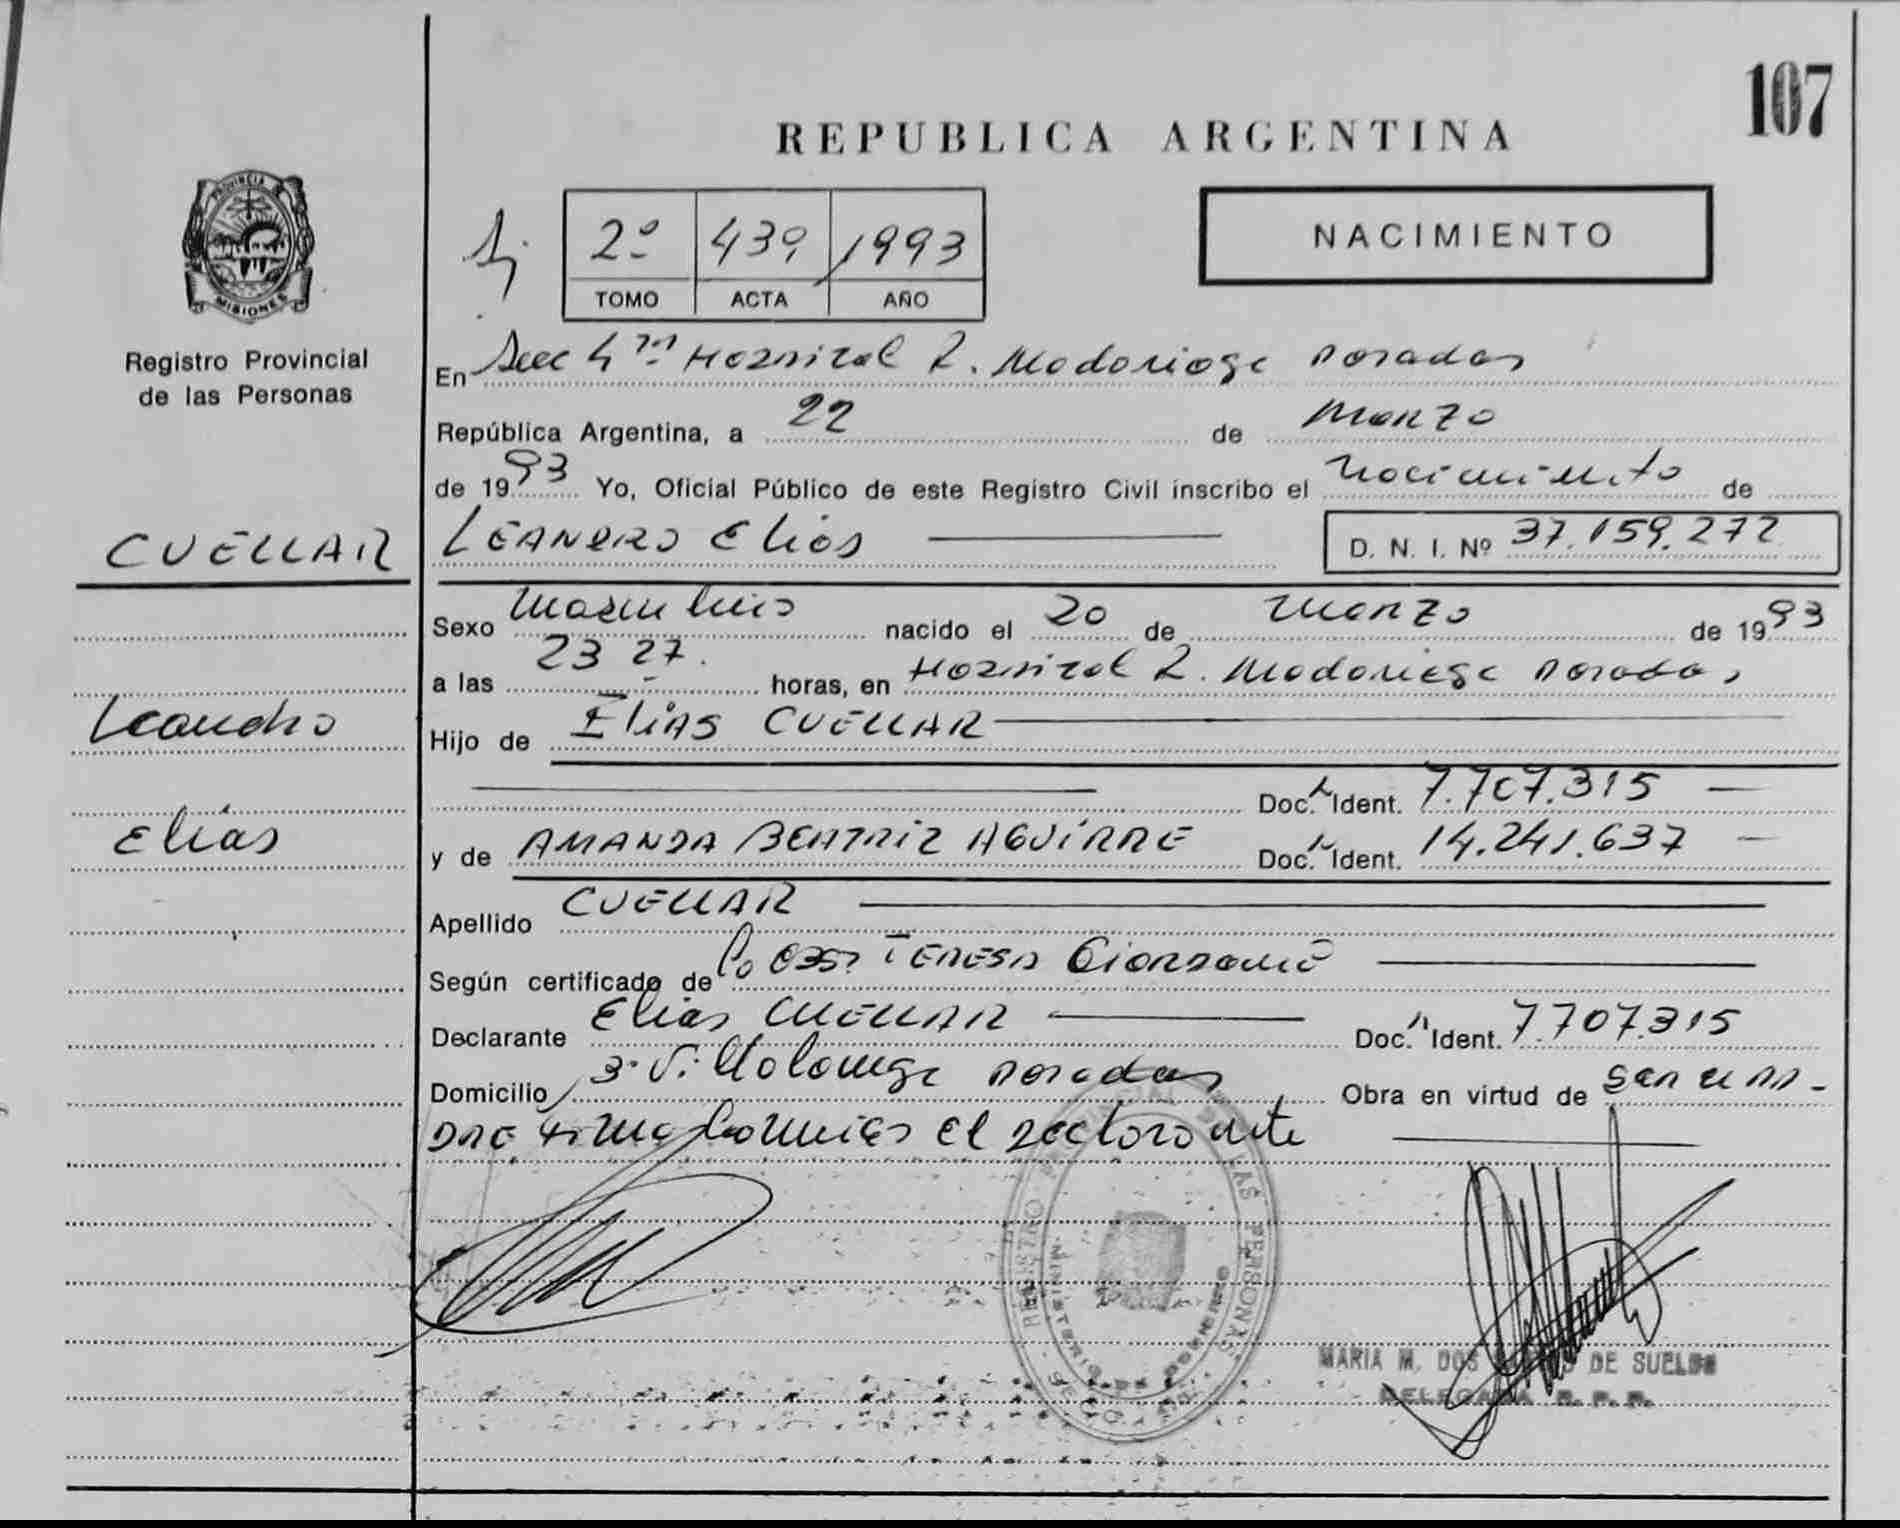 107
REPUBLICA ARGENTINA
PROVINCIA DE
MISIONES
Registro Provincial
de las Personas
2º 439 1993
TOMO ACTA AÑO
NACIMIENTO
En Secc 4ta Hospital R. Madariaga Posadas
República Argentina, a 22 de Marzo
de 1993 Yo, Oficial Público de este Registro Civil inscribo el nacimiento de
CUELLAR
LEANDRO Elías D. N. I. Nº 37.159.272
Sexo Masculino nacido el 20 de Marzo de 1993
a las 23 27. horas, en Hospital R. Madariaga Posadas
Leandro
Hijo de Elías CUELLAR
Doc. Ident. 7.707.315
Elías
y de AMANDA BEATRIZ AGUIRRE Doc. Ident. 14.241.637
Apellido CUELLAR
Según certificado de TERESA
Declarante Elías CUELLAR Doc. Ident. 7.707.315
Domicilio Posadas Obra en virtud de
el declarante
REGISTRO PROVINCIAL DE LAS PERSONAS
MINISTERIO DE GOBIERNO
MARIA M. DOS DE SUELDO
DELEGADA R. P. P.